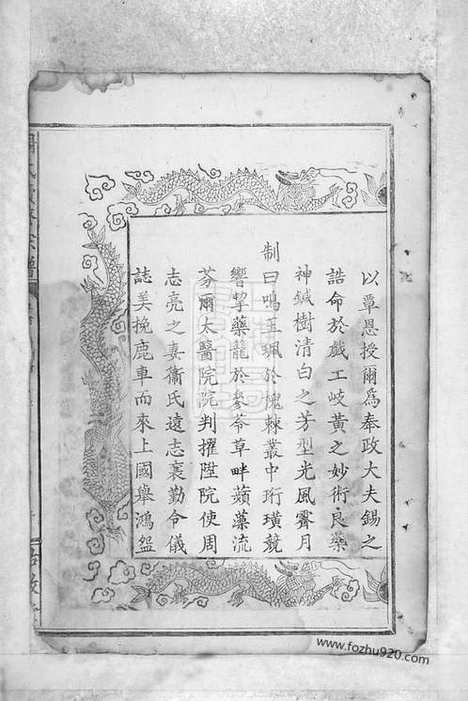 以覃恩授爾爲奉政大夫錫之
誥命於戲工岐黃之妙術良藥
神緘樹清白之芳型光風霽月
制曰鳴玉珮於槐棘叢中珩璜競
響挈藥籠於參苓草畔蘋藻流
芬爾太醫院院判擢陞院使周
志亮之妻衞氏遠志襄勤令儀
誌美挽鹿車而來上國舉鴻盌
www.fozhu920.com